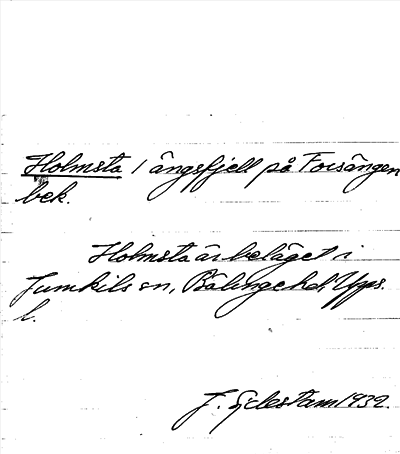 Holmsta / ängsfjell på Forsängen
bek.
Holmsta är beläget i
Jumkils sn, Bälinge hd, Upps.
l.
J. Sjelestam 1932.